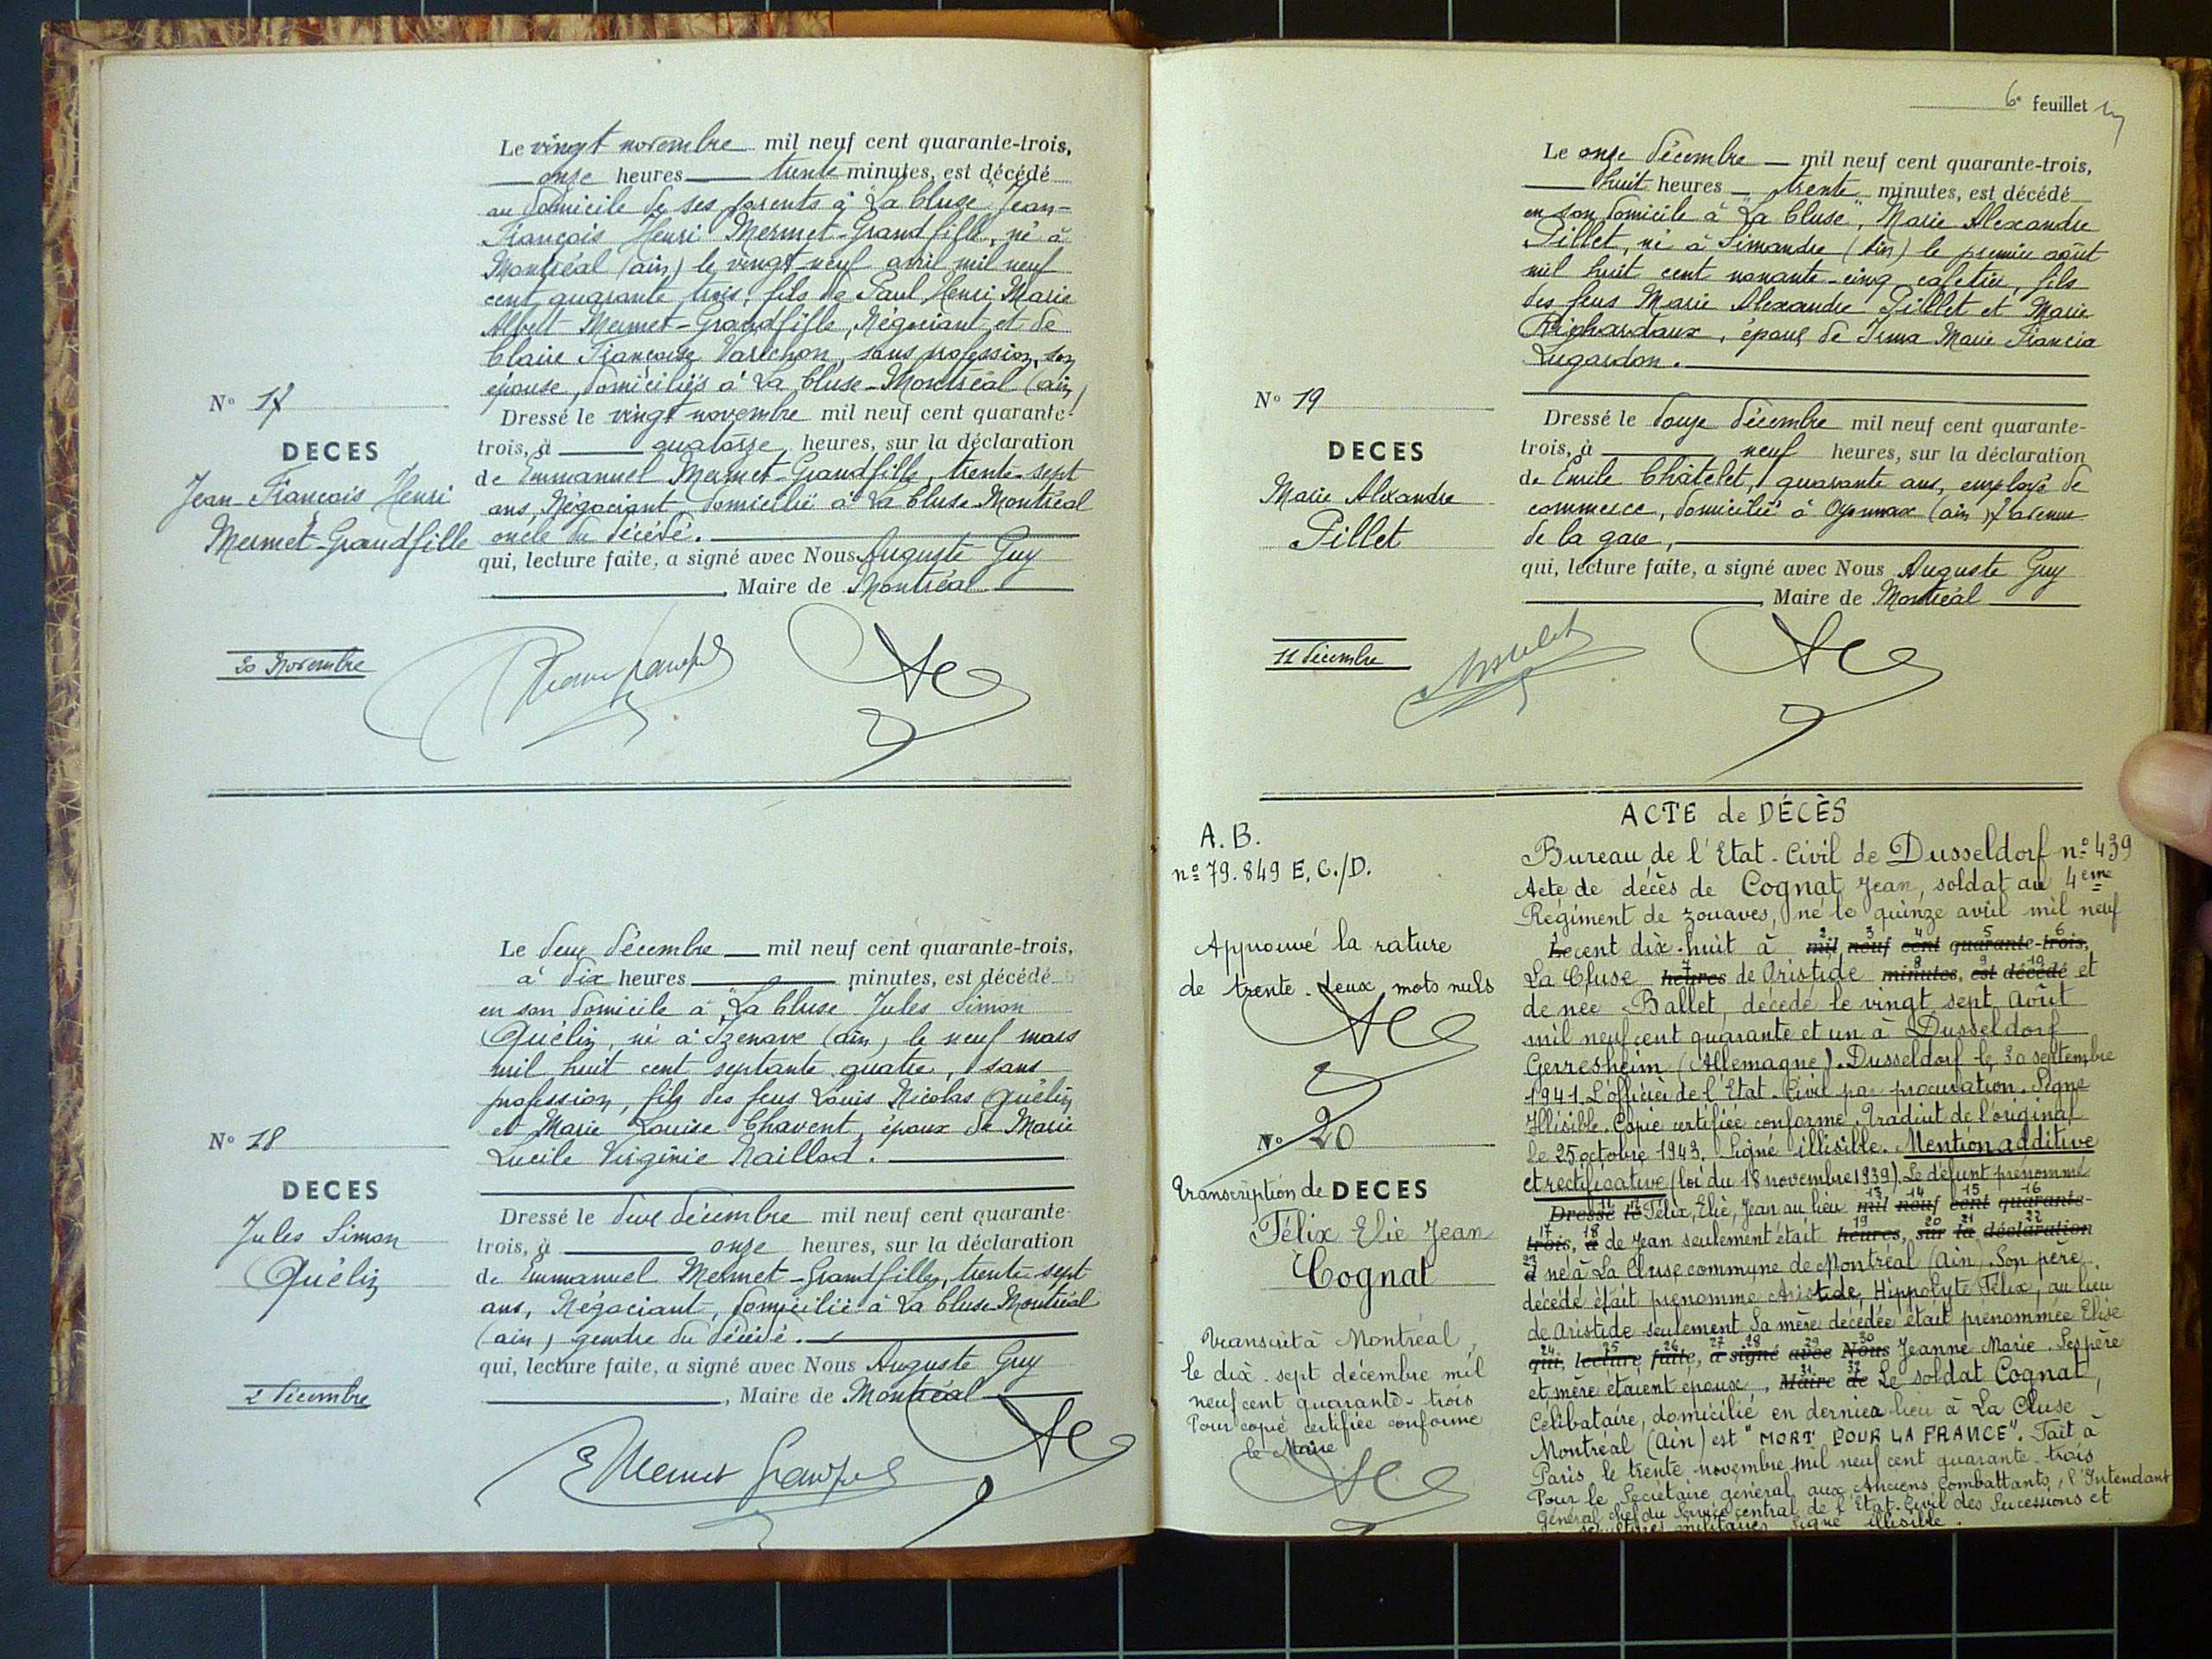 Le vingt novembre mil neuf cent quarante-trois,
onze heures trente minutes, est décédé
au domicile de ses parents à "La Cluse" Jean-
François Henri Mermet-Grandfille, né à
Montréal (ain) le vingt-neuf avril mil neuf
cent quarante trois, fils de Paul Henri Marie
Albert Mermet-Grandfille, Négociant et de
Claire Françoise Varéchon, sans profession, son
épouse, domiciliés à La Cluse-Montréal (ain)
N° 17
DECES
Jean-François Henri
Mermet-Grandfille
20 Novembre
Dressé le vingt novembre mil neuf cent quarante-
trois, à quatorze heures, sur la déclaration
de Emmanuel Mermet-Grandfille, trente-sept
ans, Négociant, domicilié à La Cluse-Montréal
oncle du décédé.
qui, lecture faite, a signé avec Nous Auguste Guy
, Maire de Montréal
Le deux décembre mil neuf cent quarante-trois,
à dix heures minutes, est décédé
en son domicile à "La Cluse" Jules Simon
Quélin, né à Izenave (ain) le neuf mars
mil huit cent septante quatre, sans
profession, fils des feus Louis Nicolas Quélin
et Marie Louise Chavent, époux de Marie
Lucile Virginie Naillod.
N° 18
DECES
Jules Simon
Quélin
2 décembre
Dressé le deux décembre mil neuf cent quarante-
trois, à onze heures, sur la déclaration
de Emmanuel Mermet-Grandfille, trente-sept
ans, Négociant, domicilié à La Cluse-Montréal
(ain) gendre du décédé.
qui, lecture faite, a signé avec Nous Auguste Guy
, Maire de Montréal
E Mermet Grandfil
6e feuillet
Le onze décembre mil neuf cent quarante-trois,
huit heures trente minutes, est décédé
en son domicile à "La Cluse", Marie Alexandre
Pillet, né à Simandre (Ain) le premier août
mil huit cent nonante-cinq cafetier, fils
des feus Marie Alexandre Pillet et Marie
époux de Irma Marie Francia
Lugardon.
N° 19
DECES
Marie Alexandre
Pillet
11 décembre
Dressé le douze décembre mil neuf cent quarante-
trois, à neuf heures, sur la déclaration
de Emile Châtelet, quarante ans, employé de
commerce, domicilié à Oyonnax (ain) avenue
de la gare,
qui, lecture faite, a signé avec Nous Auguste Guy
, Maire de Montréal
A.B.
n° 79.849 E.C./D.
Approuvé la rature
de trente-deux mots nuls
N° 20
Transcription de DECES
Félix Elie Jean
Cognat
Transcrit à Montréal,
le dix-sept décembre mil
neuf cent quarante-trois
Pour copie certifiée conforme
le Maire
ACTE de DÉCÈS
Bureau de l'Etat-Civil de Dusseldorf n° 439
Acte de décès de Cognat Jean, soldat au 4eme
Régiment de zouaves, né le quinze avril mil neuf
Le cent dix-huit à mil neuf cent quarante-trois,
La Cluse heures de Aristide minutes, est décédé et
de née Ballet, décédé le vingt sept Août
mil neuf cent quarante et un à Dusseldorf
Gerresheim (Allemagne). Dusseldorf le 30 septembre
1941. L'officier de l'Etat-Civil par procuration. Signé
Illisible. Copie certifiée conforme. Traduit de l'original
le 25 octobre 1943. Signé illisible. Mention additive
et rectificative (loi du 18 novembre 1939). Le défunt prénommé
Dressé le Félix, Elie, Jean au lieu mil neuf cent quarante-
trois, à de Jean seulement était heures, sur la déclaration
d né à La Cluse commune de Montréal (Ain). Son père
décédé était prénommé Aristide, Hippolyte Félix, au lieu
de Aristide seulement. Sa mère décédée était prénommée Elise
qui, lecture faite, a signé avec Nous Jeanne Marie. Ses père
et mère étaient époux, Maire de Le soldat Cognat,
Célibataire, domicilié en dernier lieu à La Cluse
Montréal (Ain) est "MORT POUR LA FRANCE". Fait à
Paris le trente novembre mil neuf cent quarante-trois
Pour le Secrétaire général aux Anciens Combattants, l'Intendant
Général chef du Service central de l'Etat-Civil des Successions et
sépultures militaires Signé illisible.